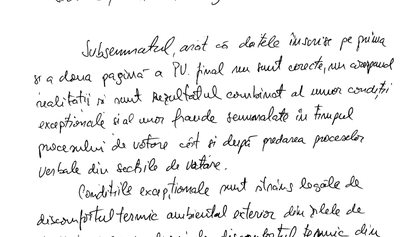 Subsemnatul, arăt că datele înscrise pe prima
și a doua pagină a PV. final nu sunt corecte, nu corespund
realității și sunt rezultatul combinat al unor condiții
excepționale și al unor fraude semnalate în timpul
procesului de votare cât și după predarea proceselor
verbale din secțiile de votare.
Condițiile excepționale sunt strâns legate de
disconfortul termic ambiental exterior din zilele de
disconfortul termic din